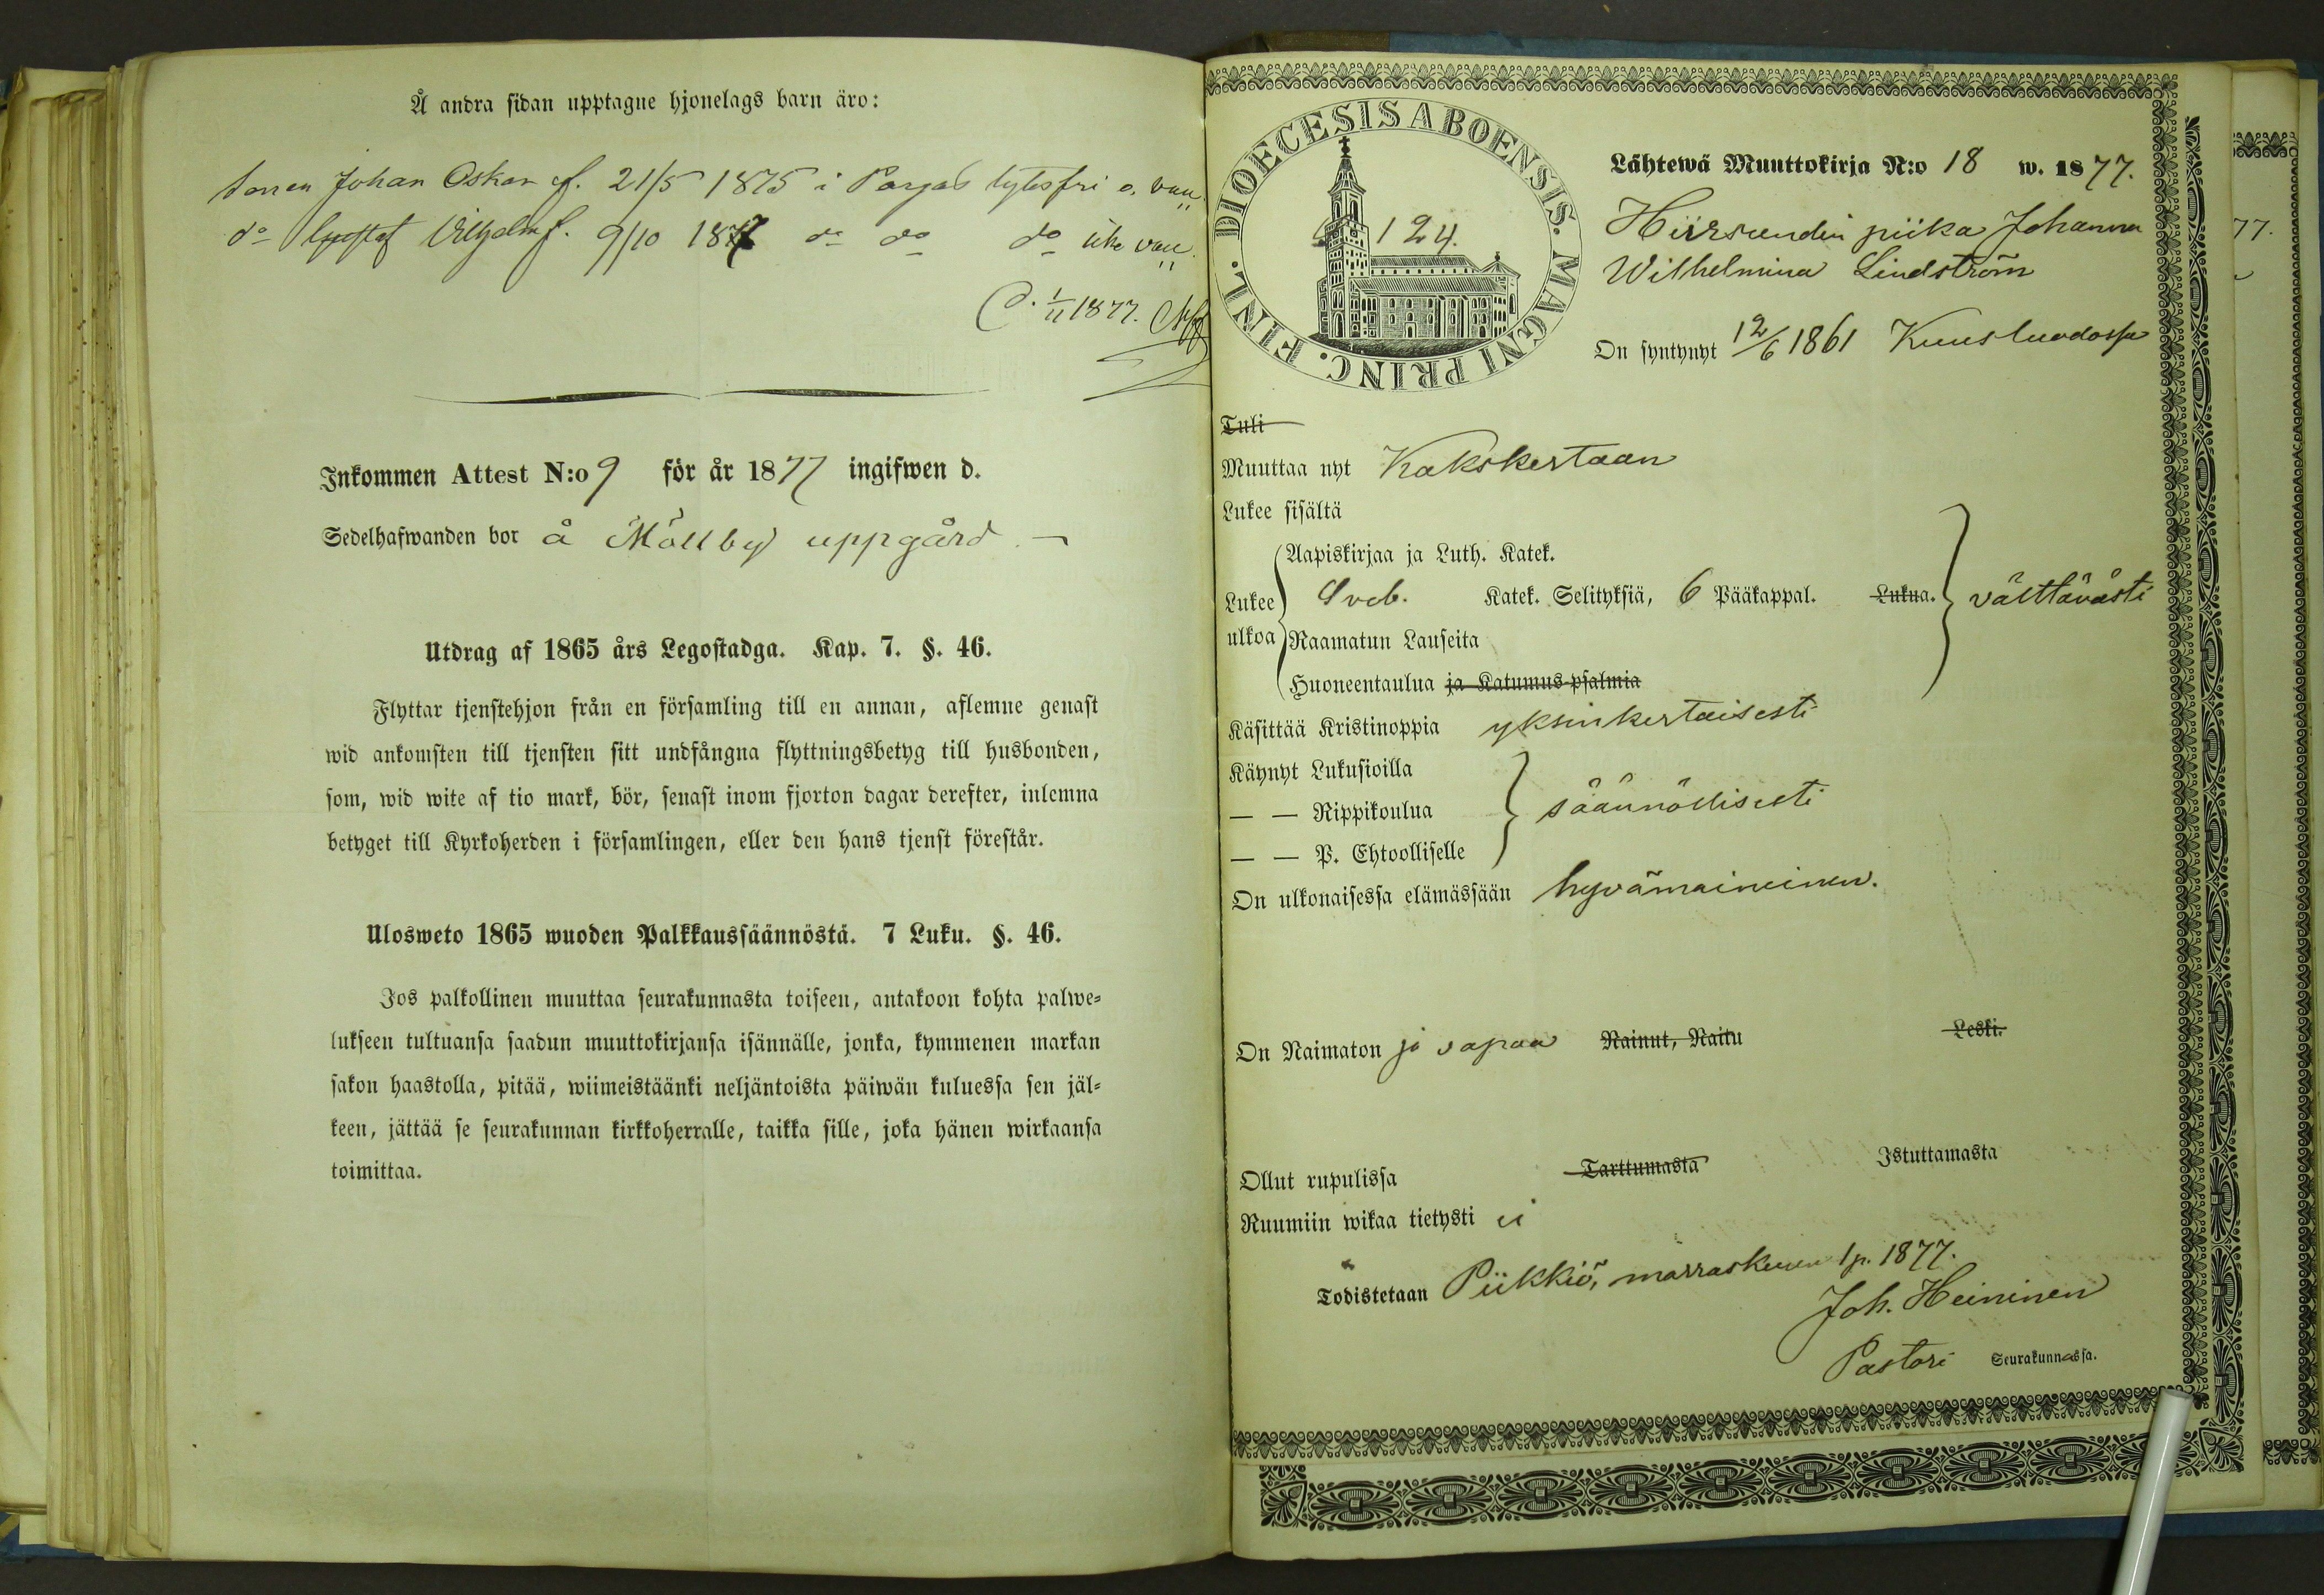 Å andra sidan upptagne hjonelags barn äro:
sonen Johan Oskar f. 21/5 1875 i Pargas lytesfri o. vacc.
do Gustaf Vilhelm f. 9/10 1877 do do do icke vacc.
d. 1/11 1877.
Inkommen Attest N:o 9 för år 1877 ingifwen d.
Sedelhafwanden bor å Mållby uppgård. —
Utdrag af 1865 års Legostadga. Kap. 7. §. 46.
Flyttar tjenstehjon från en församling till en annan, aflemne genast
wid ankomsten till tjensten sitt undfångna flyttningsbetyg till husbonden,
som, wid wite af tio mark, bör, senast inom fjorton dagar derefter, inlemna
betyget till Kyrkoherden i församlingen, eller den hans tjenst förestår.
Ulosweto 1865 wuoden Palkkaussäännöstä. 7 Luku. §. 46.
Jos palkollinen muuttaa seurakunnasta toiseen, antakoon kohta palwe=
lukseen tultuansa saadun muuttokirjansa isännälle, jonka, kymmenen markan
sakon haastolla, pitää, wiimeistäänki neljäntoista päiwän kuluessa sen jäl=
keen, jättää se seurakunnan kirkkoherralle, taikka sille, joka hänen wirkaansa
toimittaa.
DIOECESIS ABOENSIS. MAGNI PRINC. FINL.
124.
Lähtewä Muuttokirja N:o 18 w. 1877.
Hiirsundin piika Johanna
Wilhelmina Lindström
On syntynyt 12/6 1861 Kuusluodossa
Tuli
Muuttaa nyt Kakskertaan
Lukee sisältä
Aapiskirjaa ja Luth. Katek.
Lukee ulkoa
Sveb. Katek. Selityksiä, 6 Pääkappal. Lukua. välttävästi
Raamatun Lauseita
Huoneentaulua ja Katumus-psalmia
Käsittää Kristinoppia yksinkertaisesti
Käynyt Lukusioilla
— — Rippikoulua säännöllisesti
— — P. Ehtoolliselle
On ulkonaisessa elämässään hyvämaineinen.
On Naimaton ja vapaa Nainut, Naitu Leski.
Ollut rupulissa Tarttumasta Istuttamasta
Ruumiin wikaa tietysti ei
Todistetaan Piikkiö, marraskuun 1 p. 1877.
Joh. Heininen
Pastori Seurakunnassa.
77.